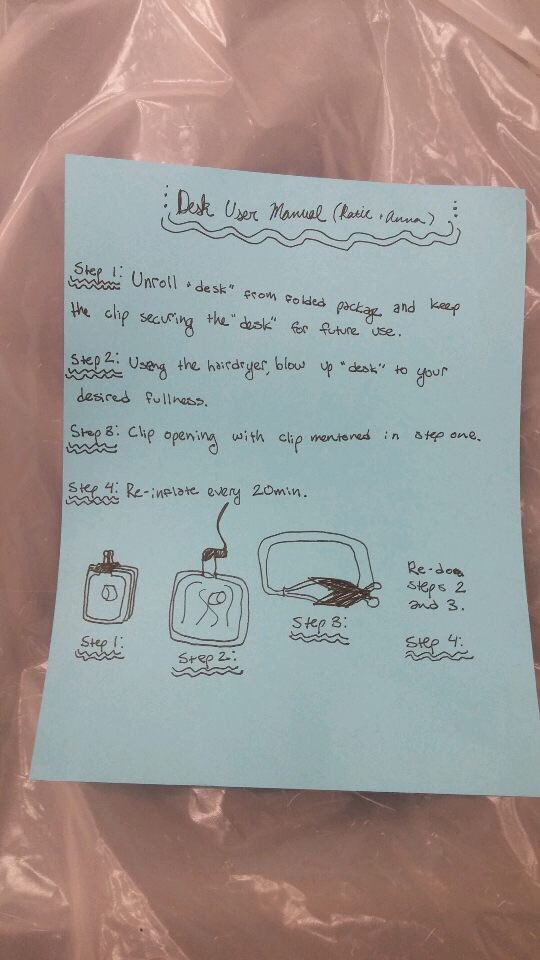 Desk User Manual (Katie + Anna)
Step 1: Unroll "desk" from folded package and keep
the clip securing the "desk" for future use.
Step 2: Using the hairdryer, blow up "desk" to your
desired fullness.
Step 3: Clip opening with clip mentoned in step one.
Step 4: Re-inflate every 20min.
Re-do
steps 2
and 3.
Step 1:
Step 2:
Step 3:
Step 4: